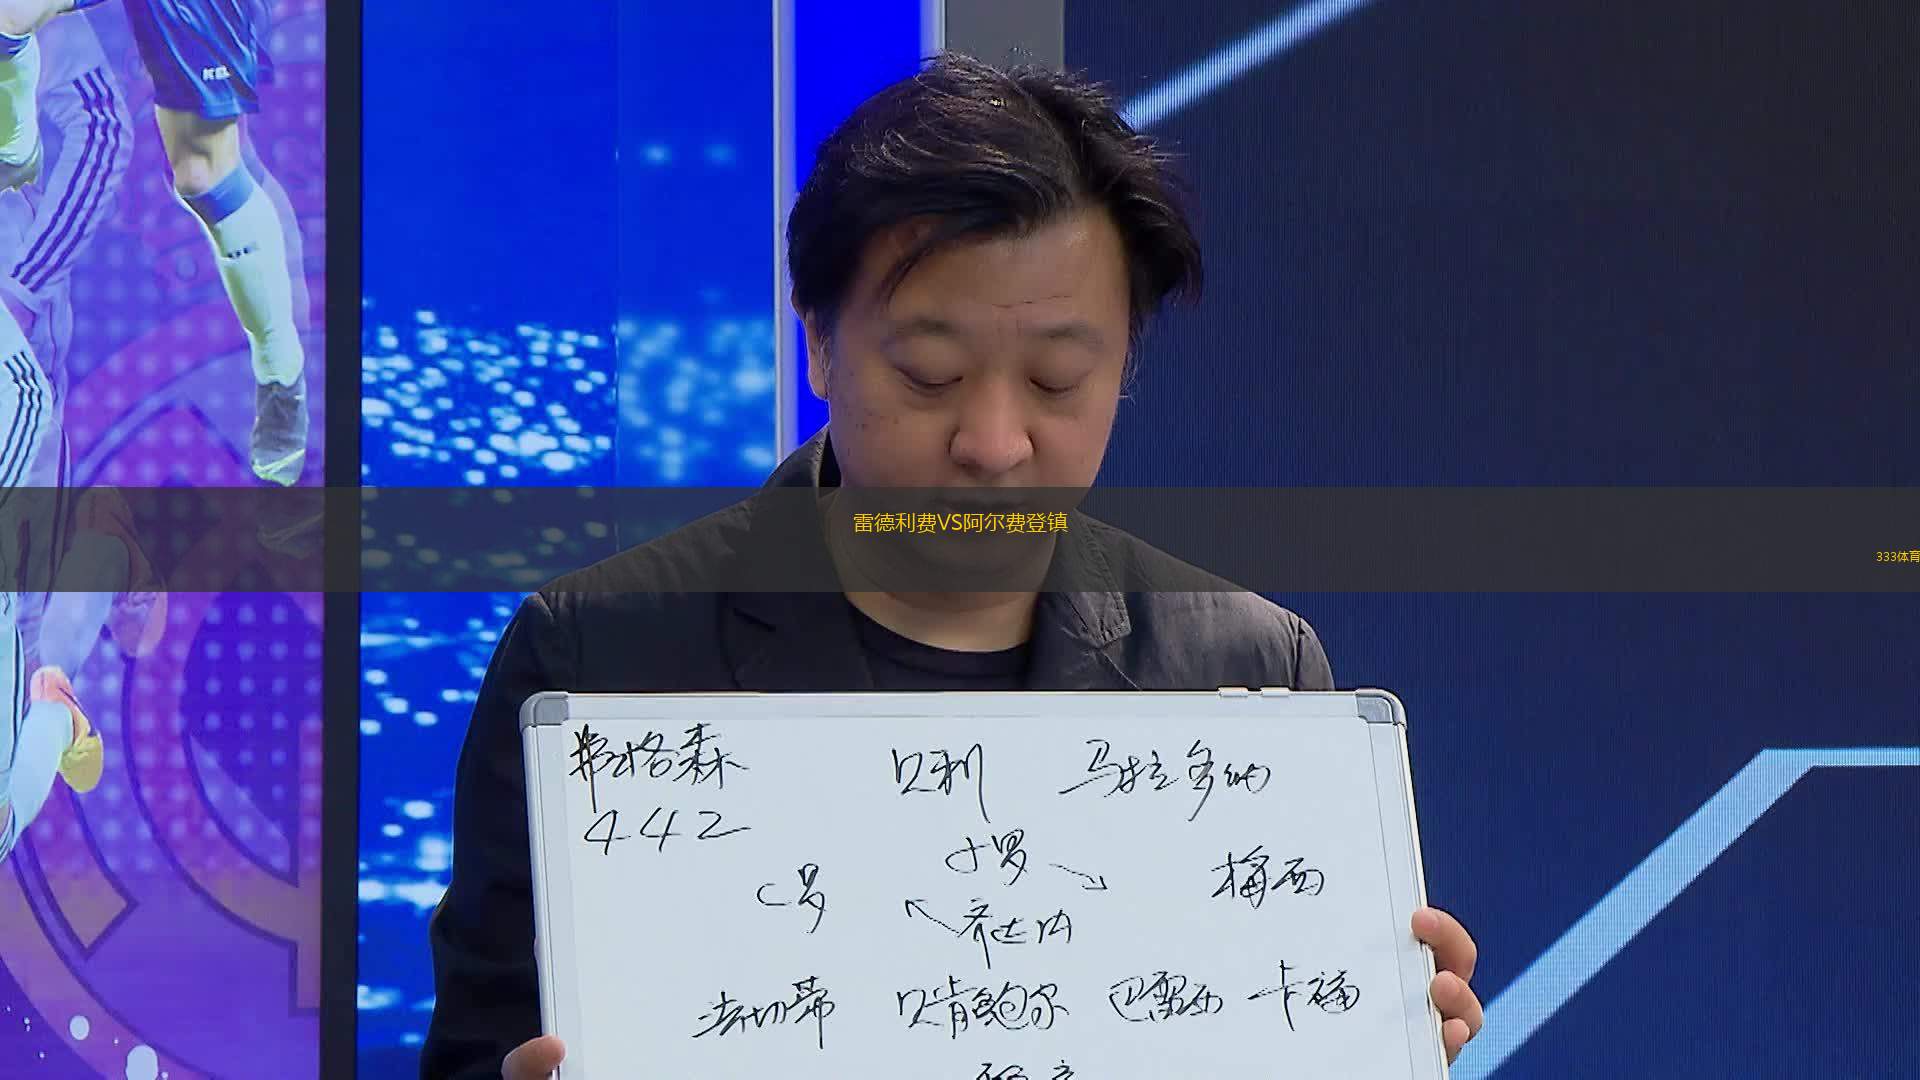 雷德利费VS阿尔费登镇
333体育
弗格森 贝利 马拉多纳
442
小罗
C罗 梅西
齐达内
法切蒂 贝肯鲍尔 巴雷西 卡福